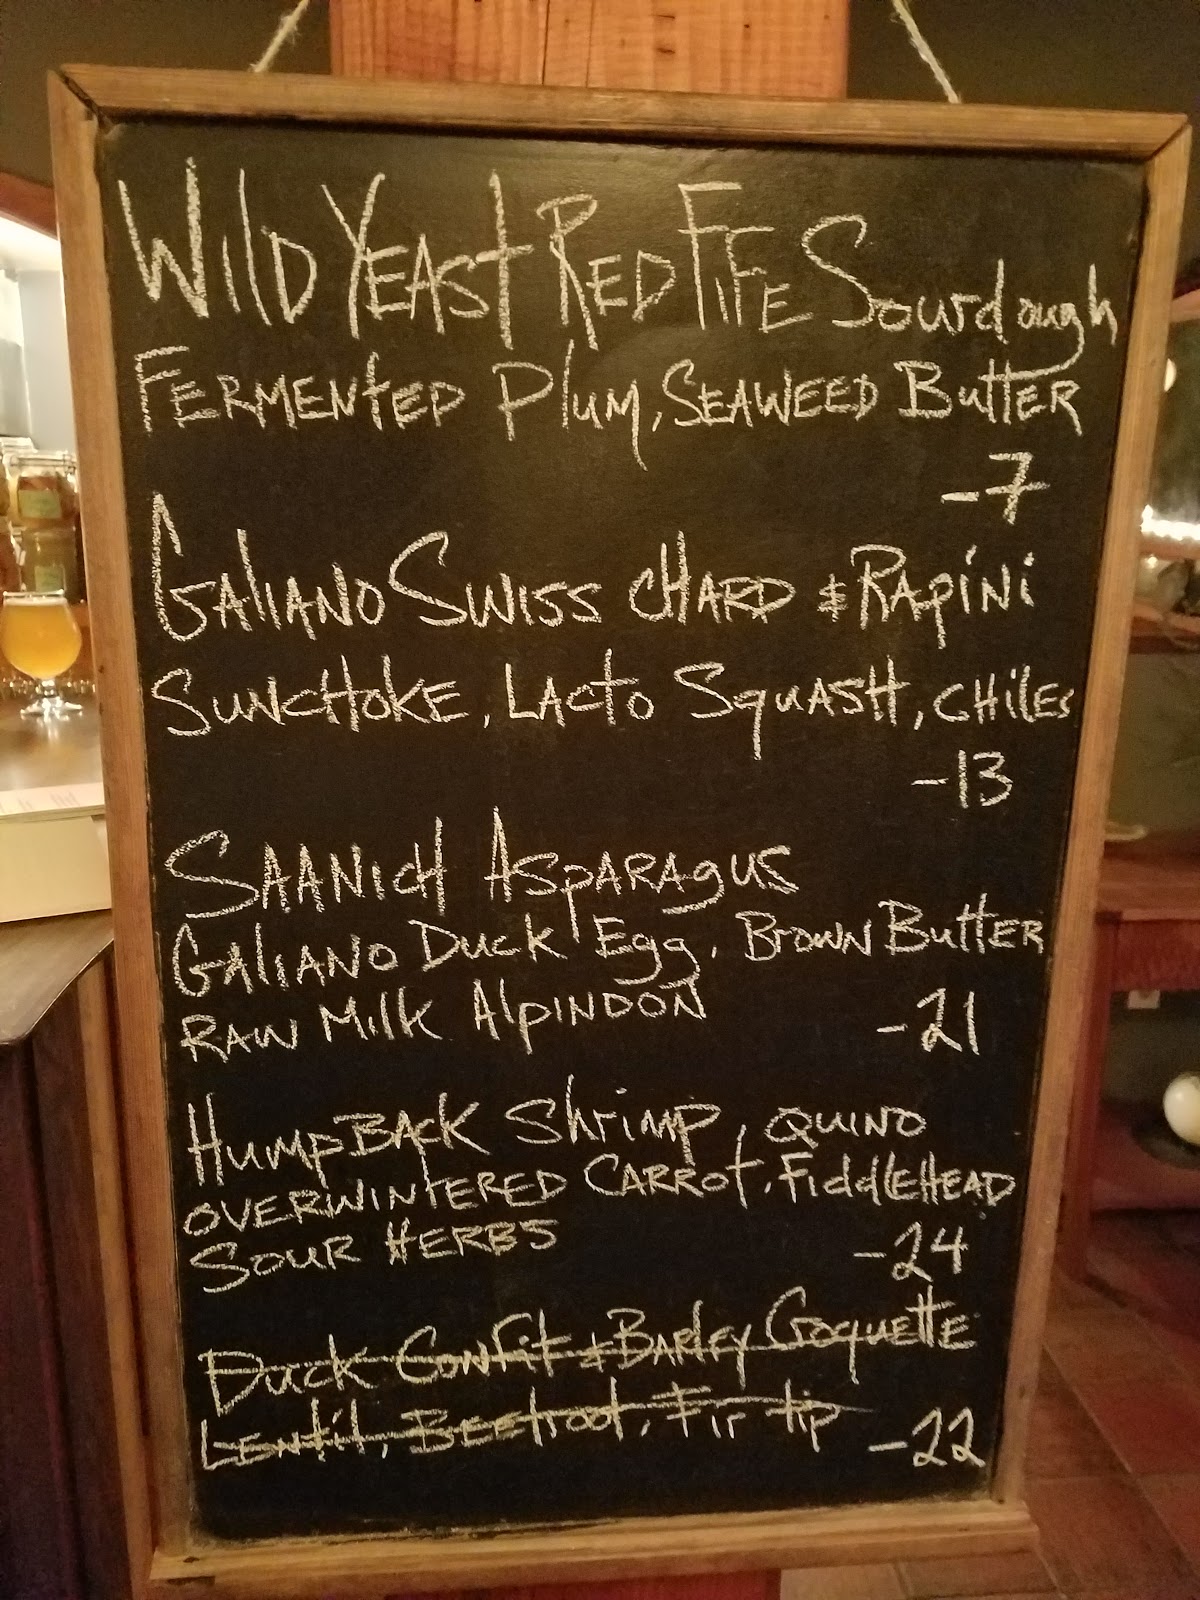 Wild Yeast Red Fife Sourdough
Fermented Plum, Seaweed Butter
-7
Galiano Swiss Chard & Rapini
Sunchoke, Lacto Squash, Chiles
-13
Saanich Asparagus
Galiano Duck Egg, Brown Butter
Raw Milk Alpindon -21
Humpback Shrimp, Quino
Overwintered Carrot, Fiddlehead
Sour Herbs -24
Duck Confit & Barley Croquette
Lentil, Beetroot, Fir tip -22